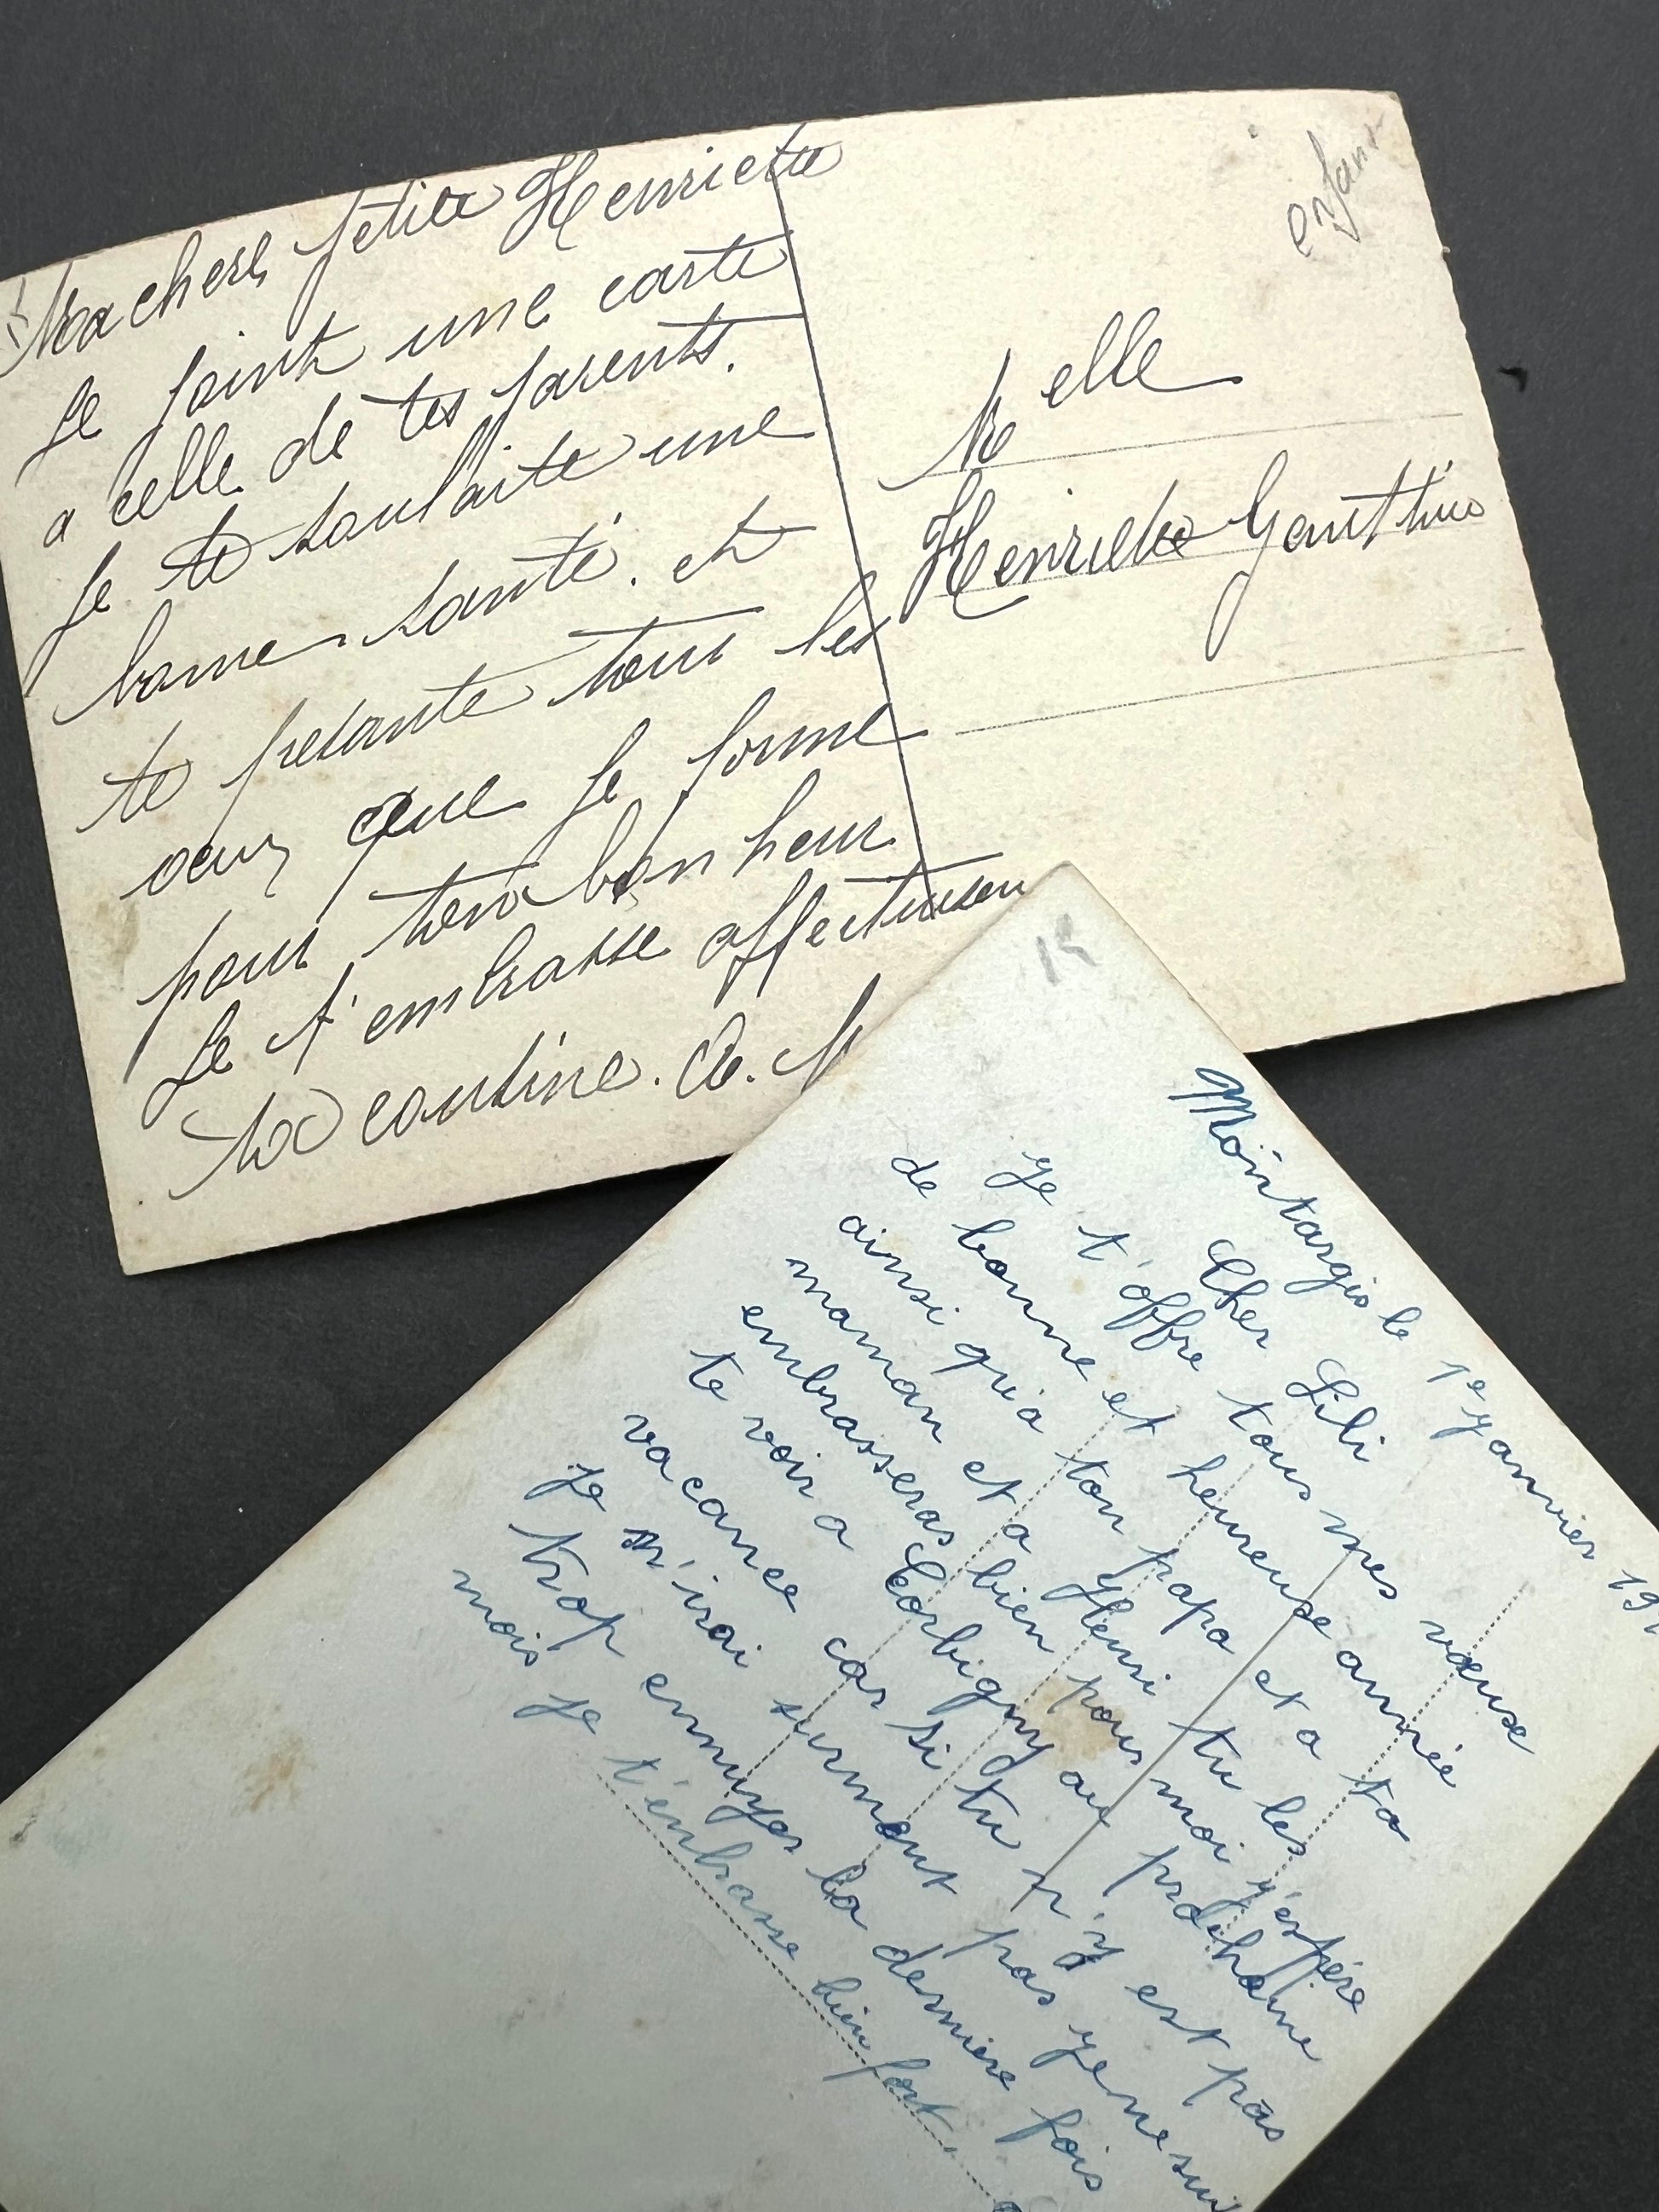 Ma chere petite Henriette
Je joint une carte
a celle de tes parents.
Je te souhaite une
bonne santé. et
te presante tous les
vœux que je forme
pour ton bonheur
Je t'embrasse affectueusem
ta cousine. A. M
enfant
Melle
Henriette Gauthier
15
Montargis le 1e yanvier 19
Cher Lili
ye t'offre tous mes vœuse
de bonne et heureuse année
ainsi qu'a ton papa et a ta
maman et a Henri tu les
embrasseras bien pour moi y'espére
te voir a Corbigny au prochaine
vacance car si tu n'y est pas
je n'irai surmant pas ye me sui
trop ennuyer la derniere fois
mois je t'enbrasse bien fort.